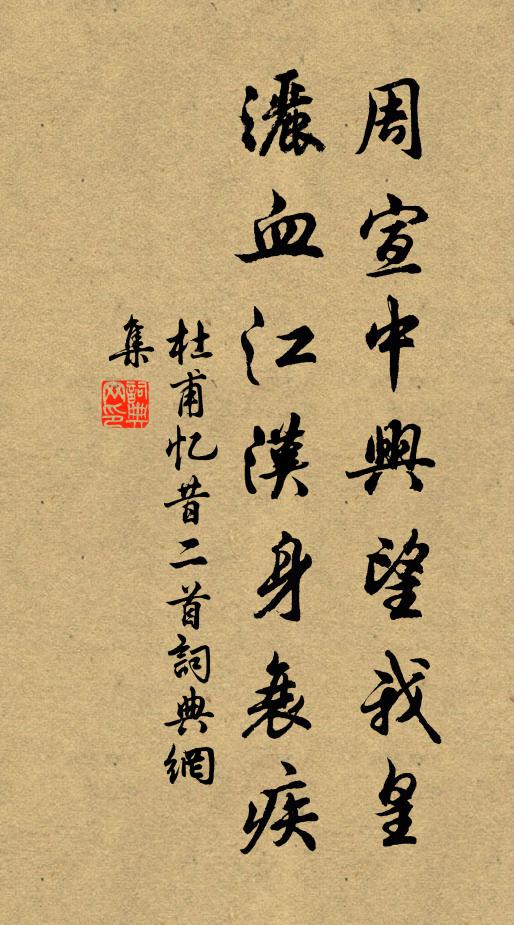 周宣中興望我皇
灑血江漢身衰疾
杜甫忆昔二首詞典網
集
詞典網印